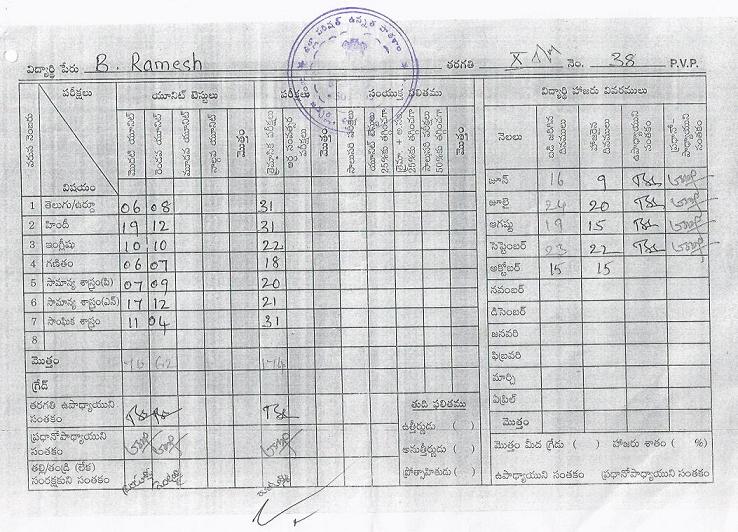 జిల్లా పరిషత్ ఉన్నత పాఠశాల
విద్యార్థి పేరు B. Ramesh తరగతి X నెం. 38 P.V.P.
వరుస నెంబరు పరీక్షలు యూనిట్ టెస్టులు పరీక్షలు సంయుక్త ఫలితము విద్యార్థి హాజరు వివరములు
విషయం మొదటి యూనిట్ రెండవ యూనిట్ మూడవ యూనిట్ నాల్గవ యూనిట్ మొత్తం త్రైమాసిక పరీక్షలు అర్థ సంవత్సర పరీక్షలు మొత్తం సాలుసరి పరీక్షలు యూనిట్ టెస్టులు 25%కు తగ్గించగా 25%కు తగ్గించగా సాలుసరి పరీక్షలు 50%కు తగ్గించగా మొత్తం నెలలు దినములు హాజరైన దినములు ఉపాధ్యాయుని సంతకం ప్రధానోపాధ్యాయుని సంతకం
జూన్ 16 9
1 తెలుగు/ఉర్దూ 06 08 31 జూలై 24 20
2 హిందీ 19 12 31 ఆగష్టు 19 15
3 ఇంగ్లీషు 10 10 22 సెప్టెంబర్ 23 22
4 గణితం 06 07 18 అక్టోబర్ 15 15
5 సామాన్య శాస్త్రం(పి) 07 09 20 నవంబర్
6 సామాన్య శాస్త్రం(ఎన్) 17 12 21 డిసెంబర్
7 సాంఘిక శాస్త్రం 11 04 31 జనవరి
8
మొత్తం 76 62 174 ఫిబ్రవరి
గ్రేడ్ మార్చి
తరగతి ఉపాధ్యాయుని సంతకం తుది ఫలితము ఏప్రిల్
ఉత్తీర్ణుడు ( ) మొత్తం
ప్రధానోపాధ్యాయుని సంతకం అనుత్తీర్ణుడు ( ) మొత్తం మీద గ్రేడు ( ) హాజరు శాతం ( %)
తల్లి/తండ్రి (లేక) సంరక్షకుని సంతకం ప్రోత్సాహితుడు ( ) ఉపాధ్యాయుని సంతకం ప్రధానోపాధ్యాయుని సంతకం